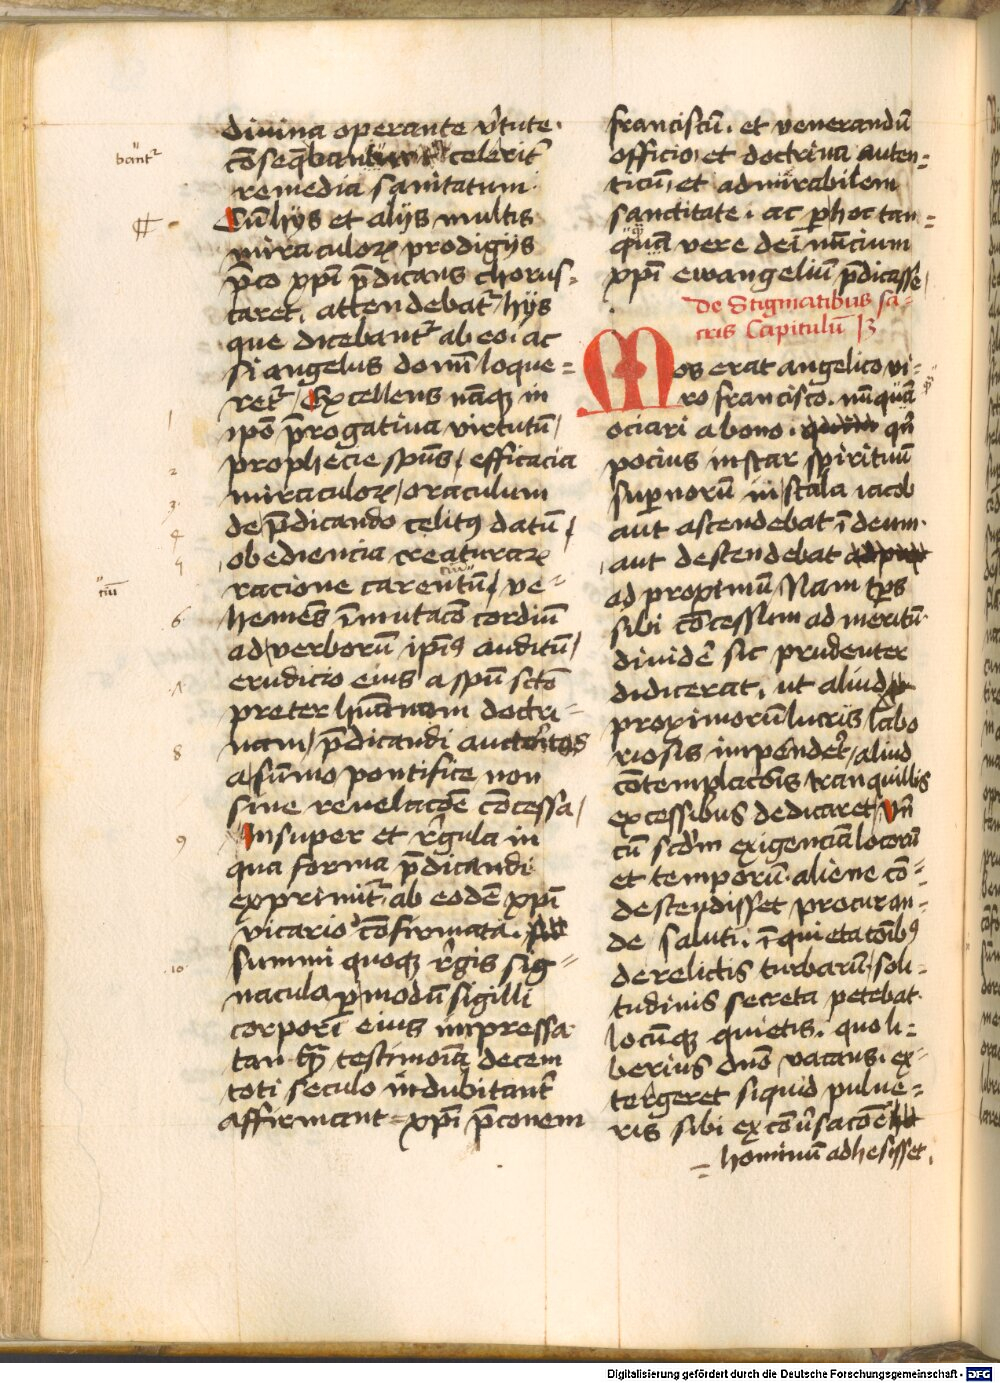 divina operante v̄tute.
bant᷑
cōseq̄bant᷑ celerit᷑
remedia sanitatum.
Cū hijs et alijs multis
miraculoꝝ prodigijs
p̄co xp̄i p̄dicans chorus=
caret, attendebat᷑ hijs
que dicebant᷑ ab eo, ac
si angelus domī loque=
ret᷑. Excellens nāqꝫ in
1
ip̄o p̄rogatiua virtutū,
2
prophecie sp̄us, efficacia
3
miraculoꝝ, oraculum
4
de p̄dicando celitꝰ datū,
5
obediencia creaturaꝝ
racione carentiū, ve=
tiū
6
hemēs īmutacō cordiū
ad verborū ip̄iꝰ auditū,
7
erudicio eius a sp̄u sct̄o
preter humanam doctri=
8
nam, p̄dicandi auctōritas
a sūmo pontifice non
sine reuelacōe cōcessa,
9
Insuper et r̄gula in
qua forma p̄dicandi
exprimit᷑ ab eodē xp̄i
vicario cōfirmata.
10
summi quoqꝫ r̄gis sig=
nacula p̄ modū sigilli
corpori eius impressa
tan qͣm testimōia decem
toti seculo indubitant᷑
affirmant = xp̄i p̄conem
franciscū. et venerandū
officio, et doctrina auten=
ticū, et admirabilem
sanctitate. ac p̄ hoc tan=
quā vere dei nūcium
xp̄i ewangeliū p̄dicasse,
de Stigmatibus sa=
cris Capitulū 13
Mos erat angelico vi=
ro francisco. nūquā
ociari a bono. qn̄
pocius instar spirituū
sup̄norū in scala iacob
aut ascendebat ī deum.
aut descendebat
ad proximū Nam tp̄s
sibi cōcessum ad meritū.
diuidē sic prudenter
didicerat, ut aliud
proximorū lucris labo
riosis impendēt, aliud
cōtemplacōis tranquillis
excessibus dedicaret, Vn̄
cū scd̄m exigenciā locorū
et temporū. aliene cō=
descendisset procuran=
de saluti. īquietacōibꝰ
derelictis turbarū, soli=
tudinis secreta petebat.
locūqꝫ quietis. quo li=
berius dn̄o vacans. ex=
tergeret si quid pulue=
ris sibi ex cōūsacōe
= hominū adhesisset.
Digitalisierung gefördert durch die Deutsche Forschungsgemeinschaft - DFG